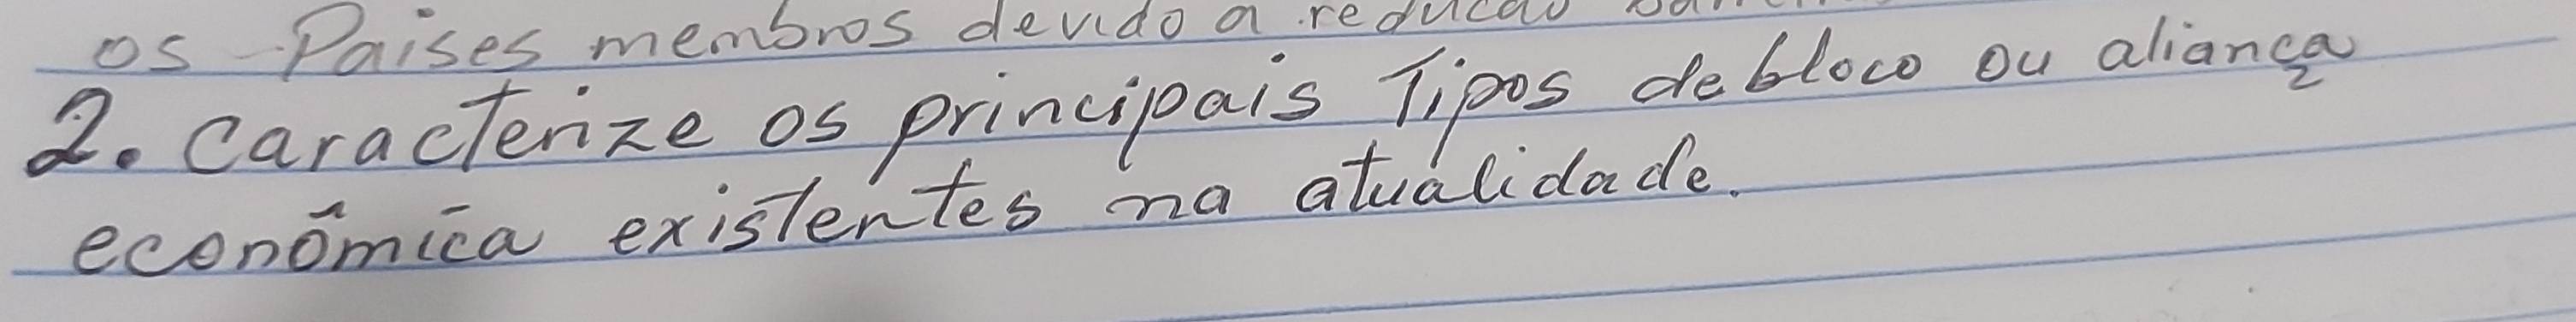 os Paises membros devido a reducao
2. Caracterize os principais Tipos de bloco ou aliança
econômica existentes na atualidade.